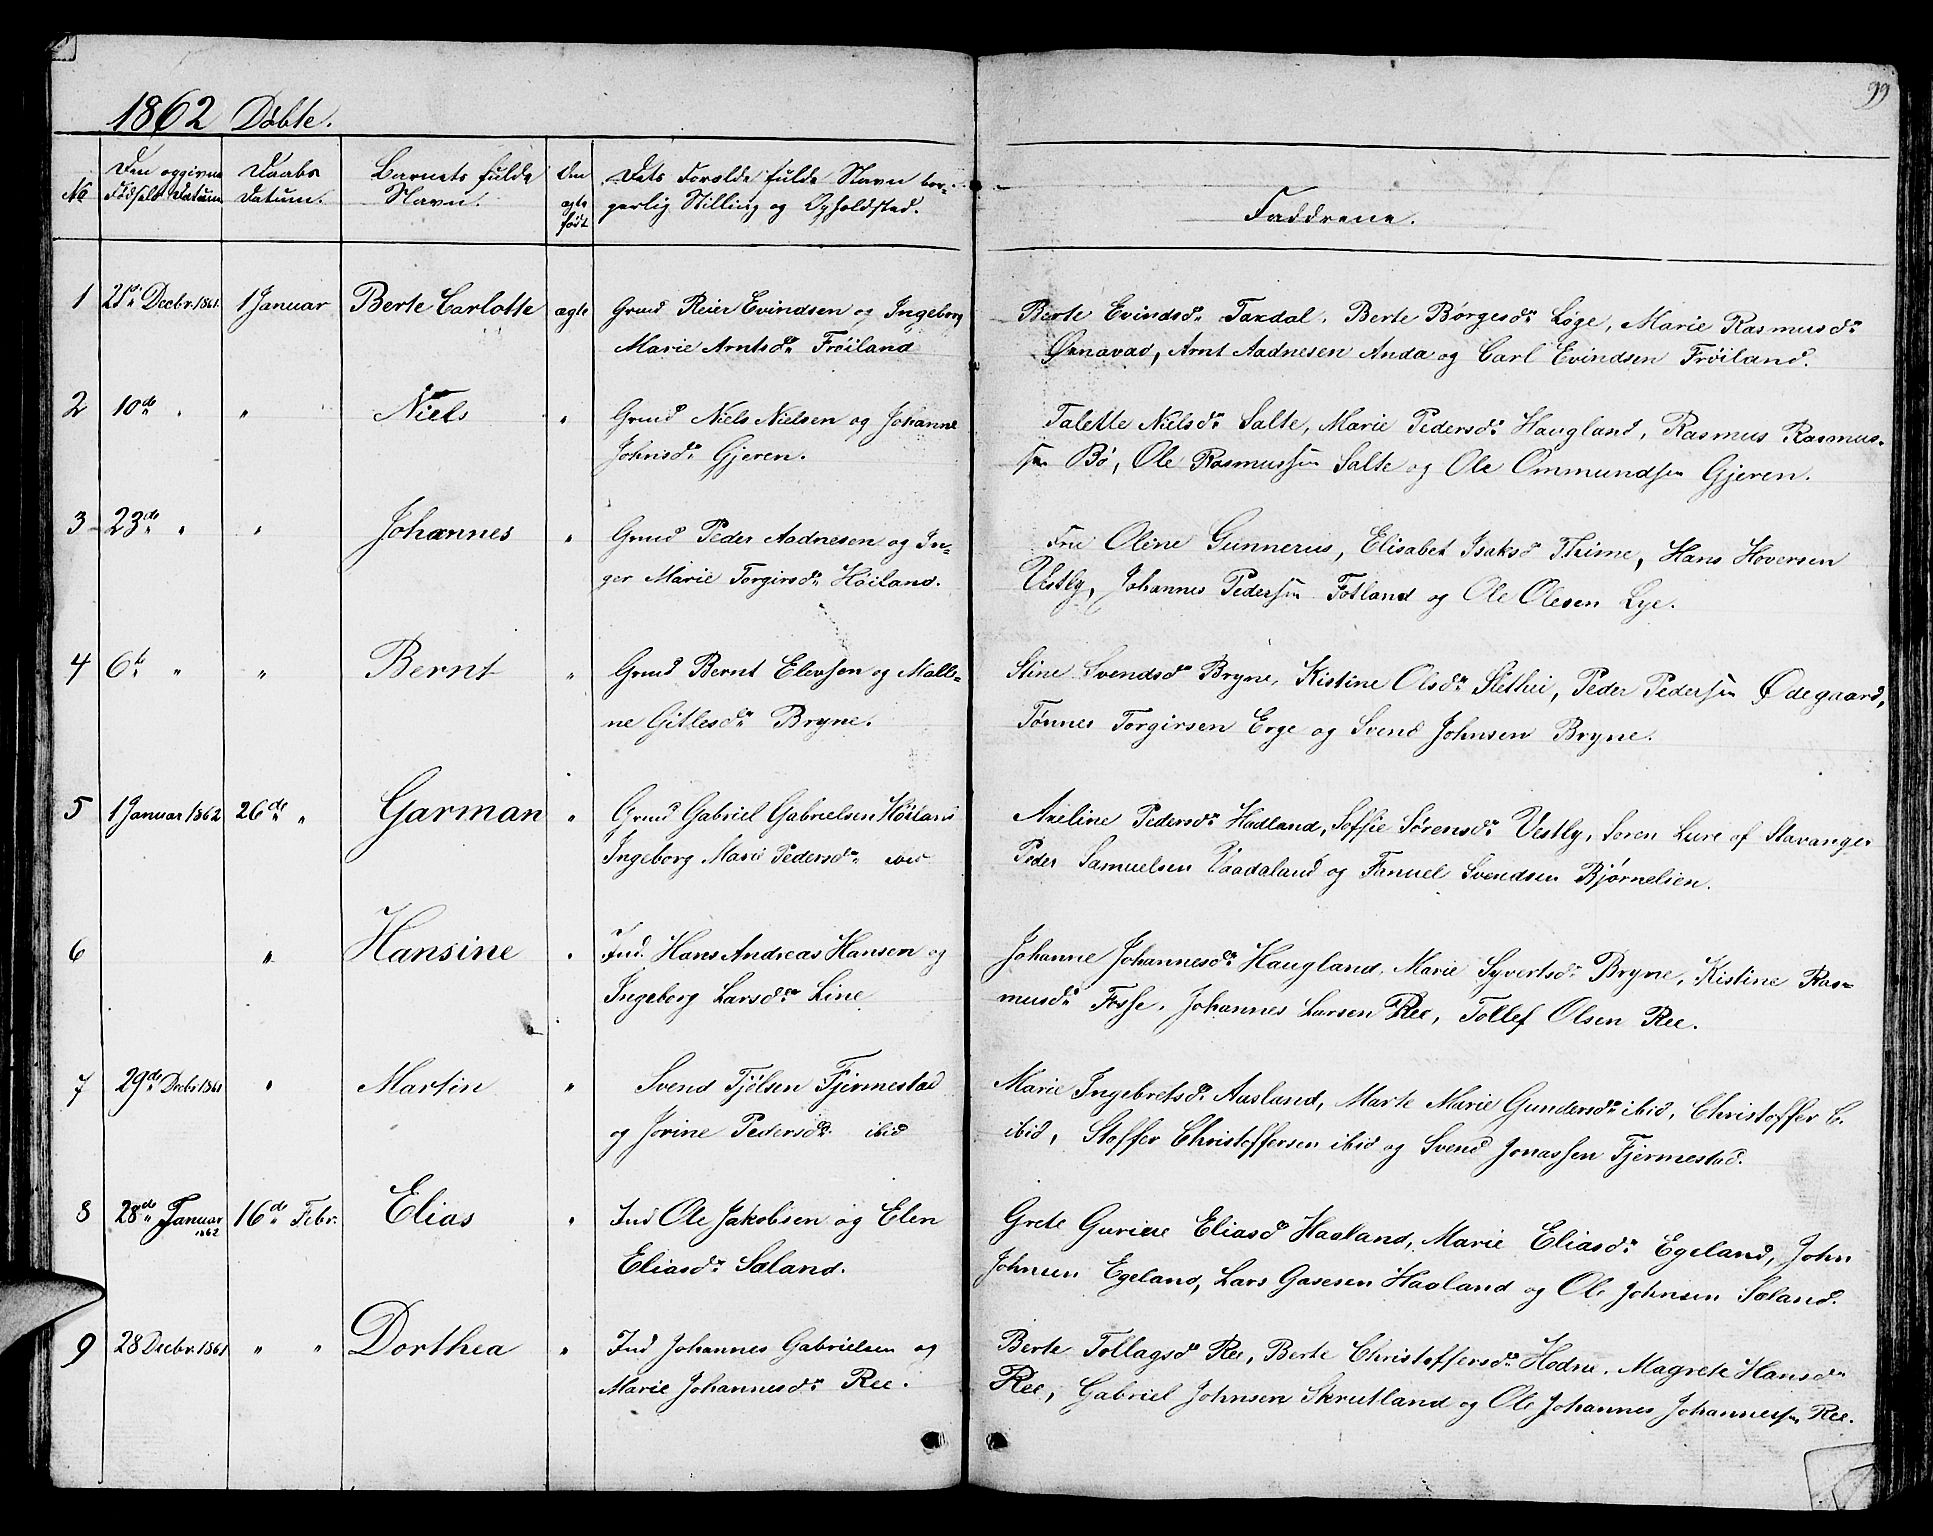 99
1862 Døbte.
No
Den opgivne Fødsels Datum
Daabs Datum.
Barnets fulde Navn.
Om ægte født
Dets Forældre fulde Navn bor-
gerlig Stilling og Opholdsted.
Faddrene.
1 21de Decbr. 1861 1 Januar Berte Carlotte ægte Grmd Reier Evindsen og Ingeborg
Marie Arntsd. Frøiland
Berte Evindsd. Taxdal, Berte Børgesd. Løge, Marie Rasmusd.
Ørnavad, Arnt Aadnesen Anda og Carl Evindsen Frøiland.
2 10de " " Niels " Grmd Niels Nielsen og Johanne
Johnsd. Gjeren.
Talette Nielsd. Salte, Marie Pedersd. Haugland, Rasmus Rasmus-
sen Bø, Ole Rasmussen Salte og Ole Ommundsen Gjeren.
3 23de " " Johannes " Grmd Peder Aadnesen og In-
ger Marie Torgirsd. Høiland.
Frue Oline Gunnerus, Elisabet Isaksd Thime, Hans Hoversen
Vestly, Johannes Pedersen Fotland og Ole Olesen Lye.
4 6te " " Bernt " Grmd Bernt Elevsen og Malle-
ne Gitlesd. Bryne.
Stine Svendsd Bryne, Kistine Olsd. Slethei, Peder Pedersen Ødegaard,
Tønnes Torgirsen Erge og Svend Johnsen Bryne.
5 1 Januar 1862 26de " Garman " Grmd Gabriel Gabrielsen Høiland
Ingeborg Marie Pedersd. ibid
Axeline Pedersd. Hadland, Soffie Sørensd. Vestly, Søren Lure af Stavanger
Peder Samuelsen Vaadaland og Fanuel Svendsen Bjørnelien.
6 " Hansine " Ind. Hans Andreas Hansen og
Ingeborg Larsd. Line
Johanne Johannesd. Haugland, Marie Syvertsd. Bryne, Kistine Ras-
musd. Fosse, Johannes Larsen Ree, Tollef Olsen Ree.
7 29de Decbr 1861 " Martin " Svend Tjølsen Fjermestad
og Jorine Pedersd. ibid
Marie Ingebretsd. Aasland, Marte Marie Gundersd. ibid, Christoffer C.
ibid, Stoffer Christoffersen ibid og Svend Jonassen Fjermestad.
8 28de Januar 1862 16de Febr. Elias " Ind Ole Jakobsen og Elen
Eliasd. Sæland.
Grete Gurine Eliasd Haaland, Marie Eliasd. Egeland, John
Johnsen Egeland, Lars Gasesen Haaland og Ole Johnsen Sæland.
9 28 Decbr. 1861 " " Dorthea " Ind Johannes Gabrielsen og
Marie Johannesd. Ree.
Berte Tollagsd Ree, Berte Christoffersd. Hodne, Magrete Hansd.
Ree, Gabriel Johnsen Skrutland og Ole Johannes Johannessen Ree.